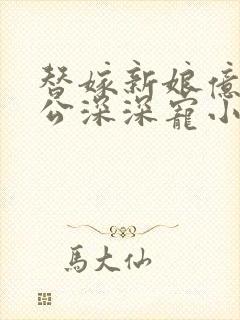 替嫁新娘億
公深深寵小
馬大仙